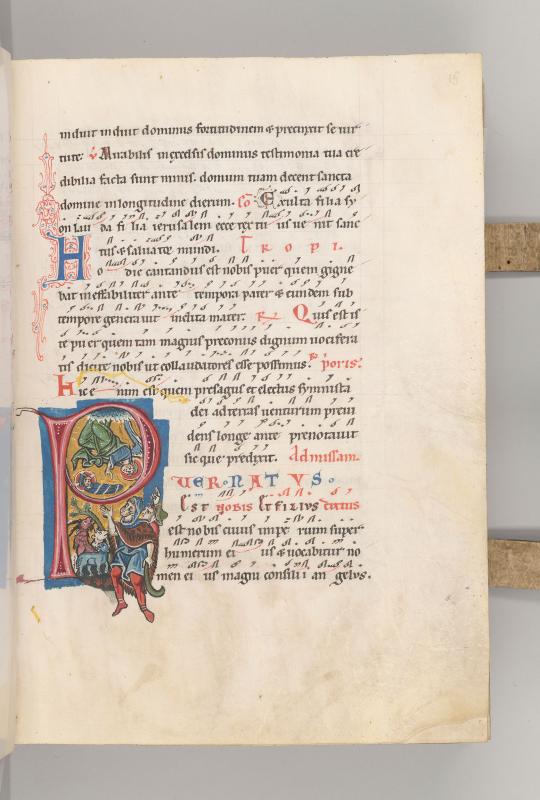 induit induit dominus fortitudinem & precinxit se uir
tute. v Mirabilis in excelsis dominus testimonia tua cre
dibilia facta sunt nimis. domum tuam decent sancta
domine in longitudine dierum. Co Exulta filia sy
on lau da fi lia ierusalem ecce rex tu us ue nit sanc
tus & saluator mundi. TROPI.
Ho die cantandus est nobis puer quem gigne
bat ineffabiliter ante tempora pater & eundem sub
tempore generauit inclita mater. R Quis est is
te puer quem tam magnis preconiis dignum uocifera
tis dicite nobis ut collaudatores esse possimus.
Hic e nim est quem presagus et electus symmista
dei ad terras uenturum preui
dens longe ante prenotauit
sic que predixit. Ad missam.
PVER NATVS
Est nobis et filius datus
est no bis cuius impe rium super
humerum ei us & uocabitur no
men ei us magni consili i an gelus.